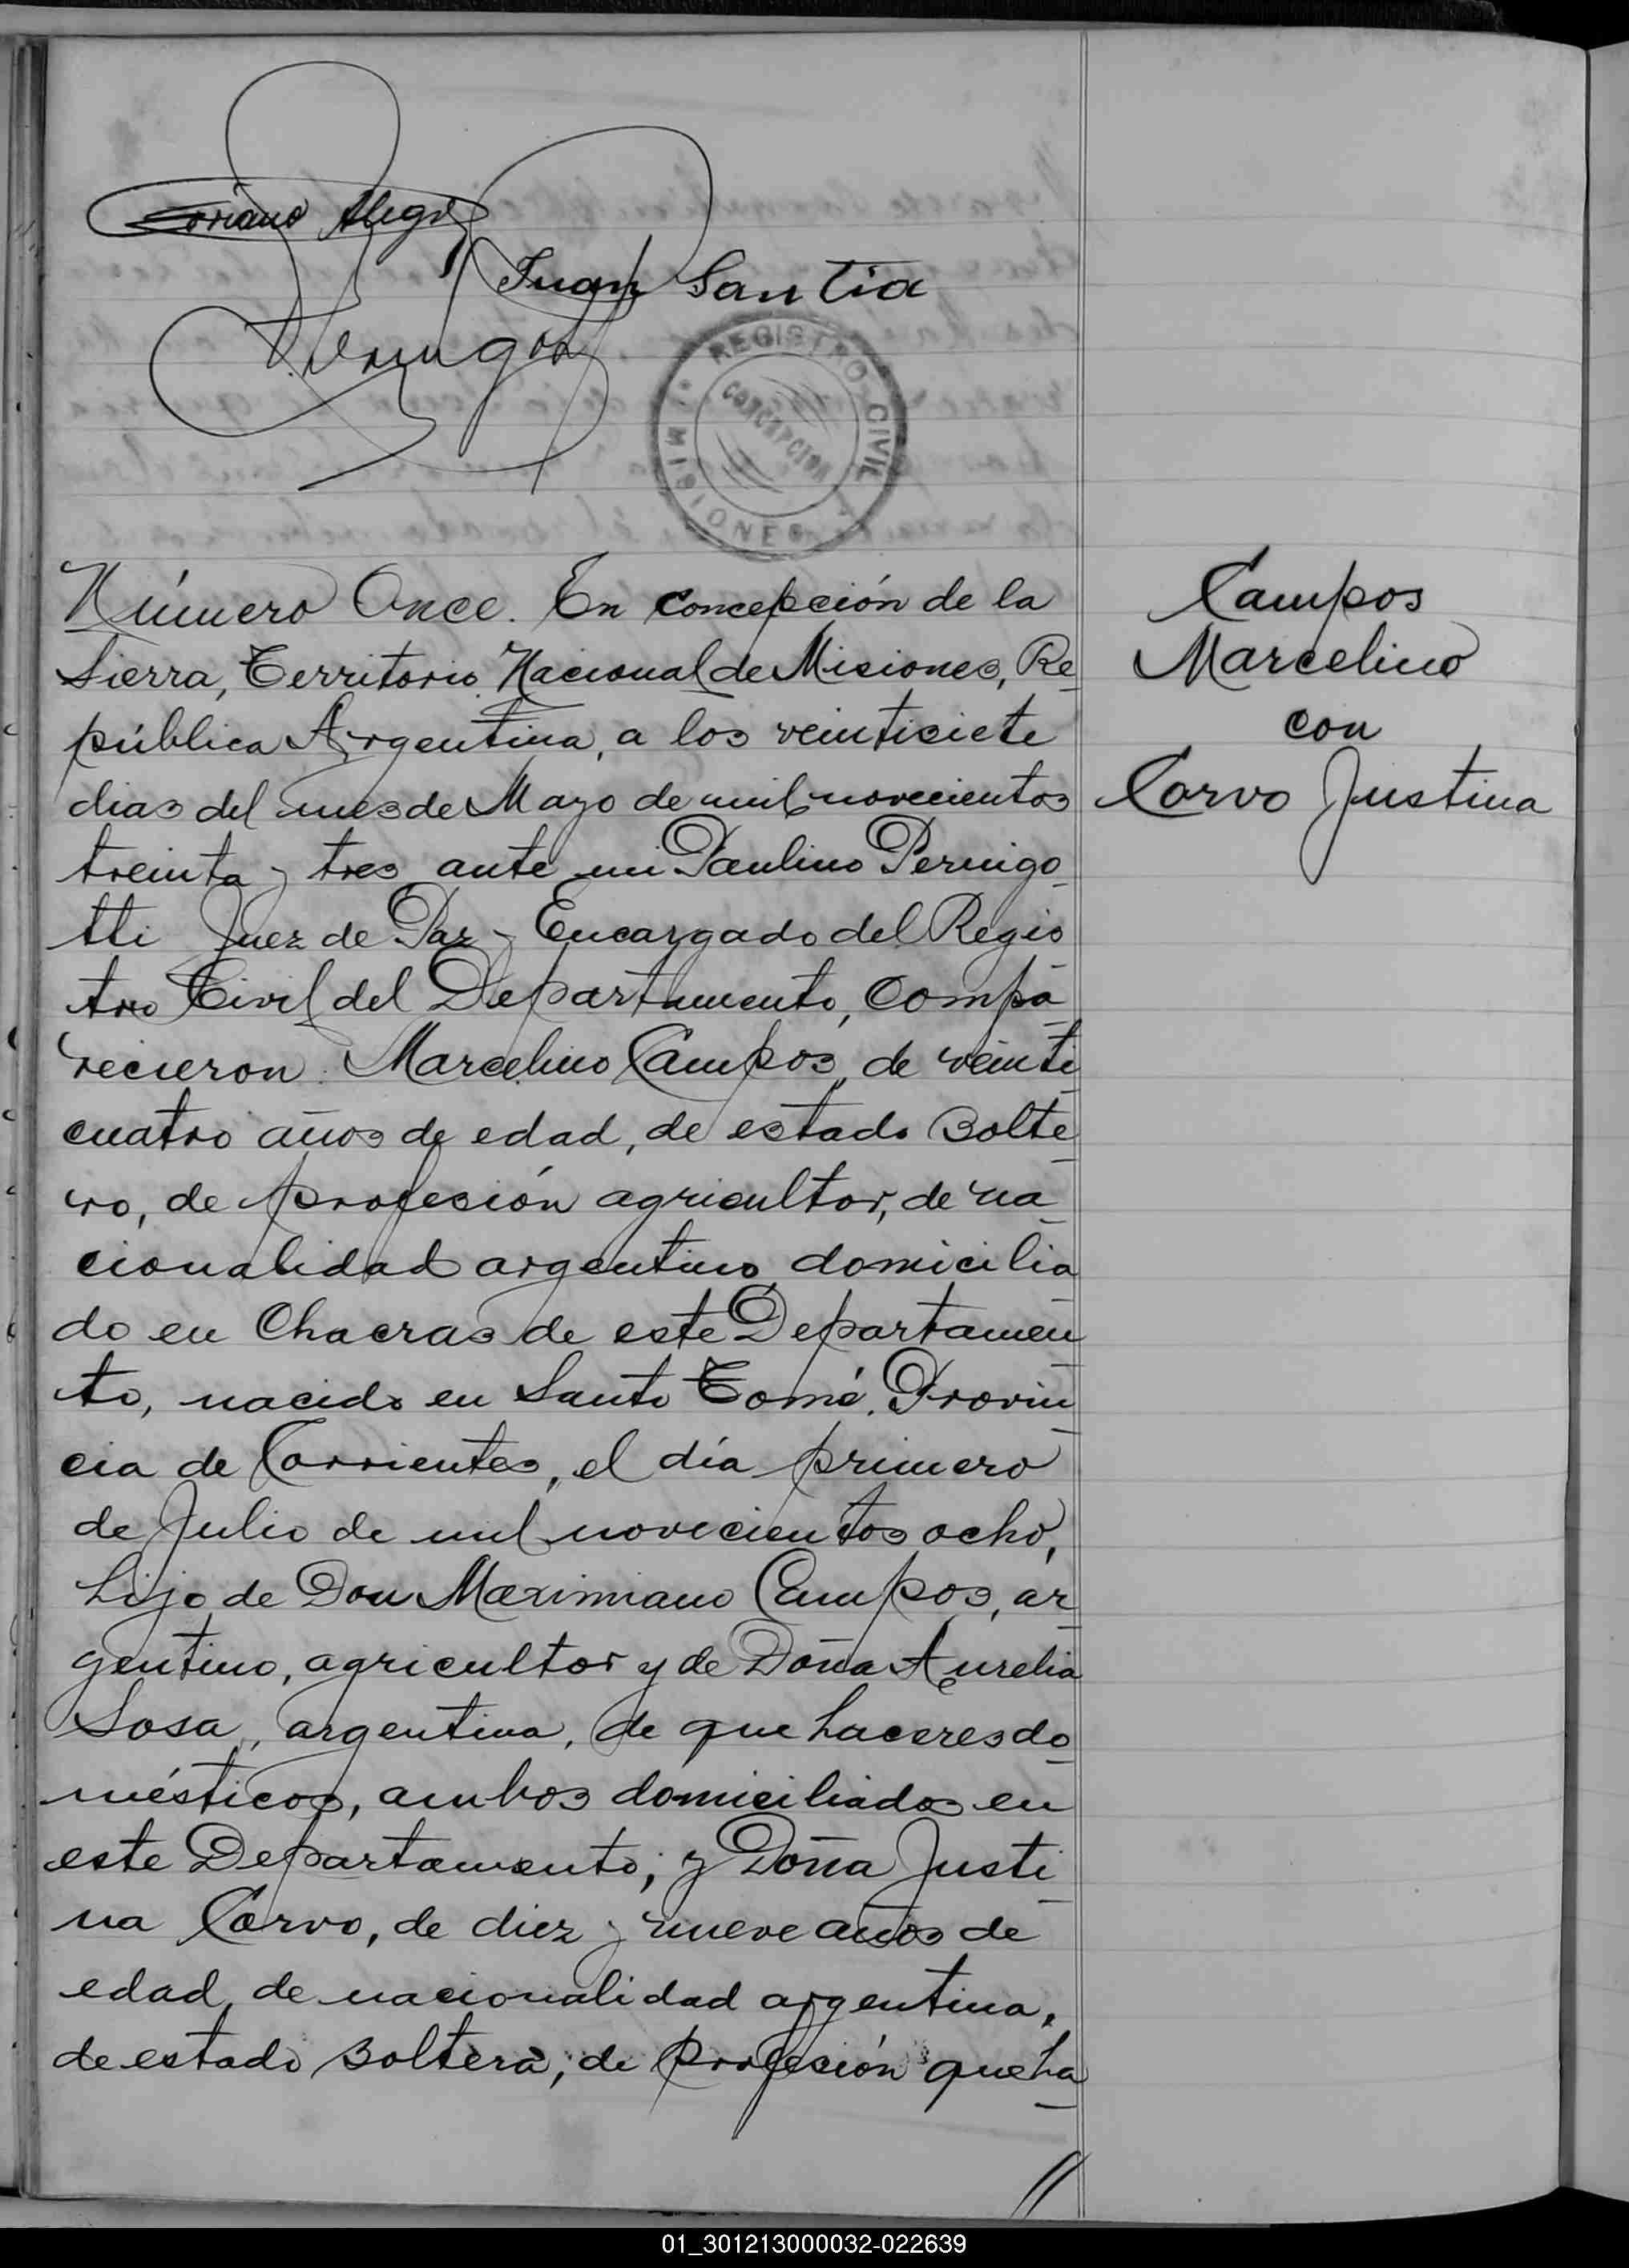 Soriano Alegre
Juan Santia
REGISTRO CIVIL
CONCEPCION
MISIONES
Número Once. En Concepción de la
Sierra, Territorio Nacional de Misiones, Re
pública Argentina, a los veintisiete
dias del mes de Mayo de mil novecientos
treinta y tres ante mi Paulino Pernigo
tti Juez de Paz y Encargado del Regis
tro Civil del Departamento, Compa
recieron: Marcelino Campos, de veinti
cuatro años de edad, de estado solte
ro, de profesión agricultor, de na
cionalidad argentino domicilia
do en Chacras de este Departamen
to, nacido en Santo Tomé, Provin
cia de Corrientes, el día primero
de Julio de mil novecientos ocho,
hijo de Don Maximiano Campos, ar
gentino, agricultor y de Doña Aurelia
Sosa, argentina, de que haceres do
mésticos, ambos domiciliados en
este Departamento; y Doña Justi
na Corvo, de diez y nueve años de
edad, de nacionalidad argentina,
de estado soltera, de profesión queha
//
Campos
Marcelino
con
Corvo Justina
01_301213000032-022639